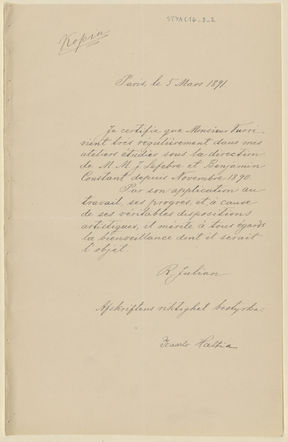 Kopia
Paris le 5 Mars 1891
Je certifie que Monsieur
vient très régulièrement dans mes
ateliers étudier sous la direction
de M. M. J. Lefebre et Benjamin
Constant depuis Novembre 1890.
Par son application au
travail, ses progrès, et à cause
de ses veritables dispositions
artistiques, il mérite à tous égards
la bienveillance dont il serait
l'objet.
R. Julian
Afskriftens riktighet bestyrka: